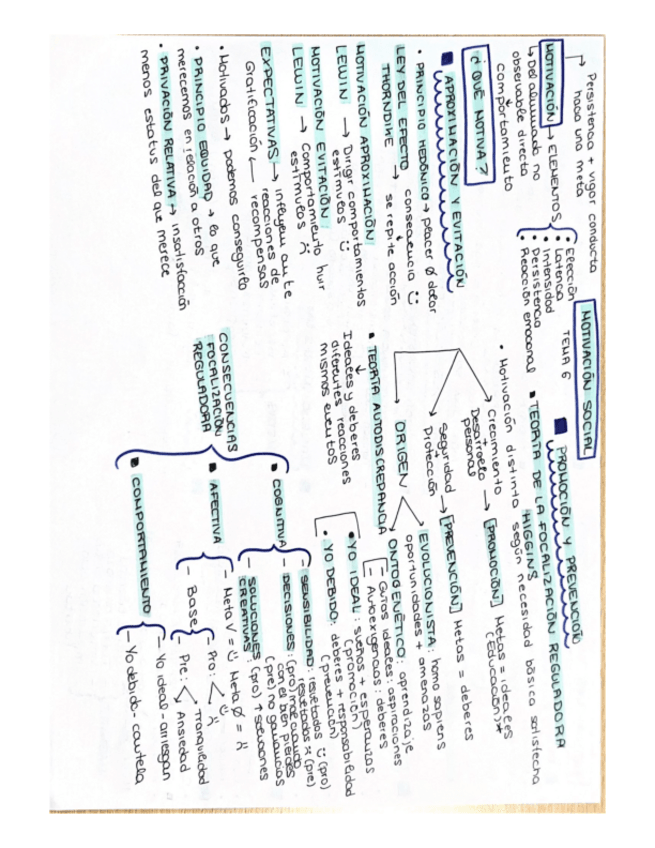 MOTIVACIÓN SOCIAL
TEMA 6
Persistencia + vigor conducta
hacia una meta
MOTIVACIÓN → ELEMENTOS
• Elección
• Latencia
• Intensidad
• Persistencia
• Reacción emocional
↳ Del alumnado no
observable directa
comportamiento
¿QUÉ MOTIVA?
■ APROXIMACIÓN Y EVITACIÓN
• PRINCIPIO HEDÓNICO → placer Ø dolor
LEY DEL EFECTO consecuencia :)
THORNDIKE → se repite acción
MOTIVACIÓN APROXIMACIÓN
LEWIN → Dirigir comportamientos
estímulos :)
MOTIVACIÓN EVITACIÓN
LEWIN → Comportamiento huir
estímulos :(
EXPECTATIVAS → influyen ante
reacciones de
Gratificación ← recompensas
• Motivados → podemos conseguirlo
• PRINCIPIO EQUIDAD → lo que
merecemos en relación a otros
• PRIVACIÓN RELATIVA → insatisfacción
menos estatus del que merece
■ PROMOCIÓN Y PREVENCIÓN
■ TEORÍA DE LA FOCALIZACIÓN REGULADORA
HIGGINS
• Motivación distinta según necesidad básica satisfecha
Crecimiento
+
Desarrollo
personal
→ [PROMOCIÓN] Metas = ideales
(Educación)*
Seguridad
+
Protección
→ [PREVENCIÓN] Metas = deberes
ORIGEN
EVOLUCIONISTA: homo sapiens
oportunidades + amenazas
ONTOGENÉTICO: aprendizaje
Guías ideales: aspiraciones
Autoexigencias: deberes
• TEORÍA AUTODISCREPANCIA
Ideales y deberes
diferentes reacciones
mismos eventos
• YO IDEAL: sueños + esperanzas
(promoción)
• YO DEBIDO: deberes + responsabilidad
(prevención)
CONSECUENCIAS
FOCALIZACIÓN
REGULADORA
■ COGNITIVA
- SENSIBILIDAD: resultados :) (pro)
resultados :( (pre)
- DECISIONES: (pro)
(pre) no ganancias
- SOLUCIONES: (pro) ↑ soluciones
CREATIVAS
■ AFECTIVA
- Meta V = :) Meta Ø = :(
- Base
- Pro: < Tranquilidad
- Pre: < Ansiedad
■ COMPORTAMIENTO
- Yo ideal - arriesgan
- Yo debido - cautela